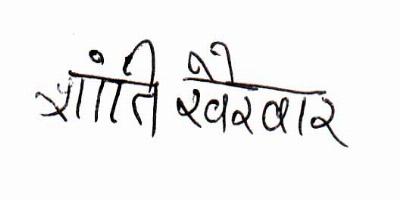 शांति खैरवार